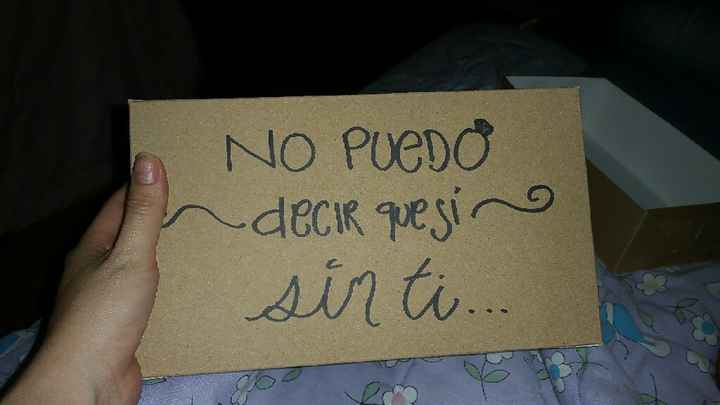 NO PUEDO
decir que si
sin ti...